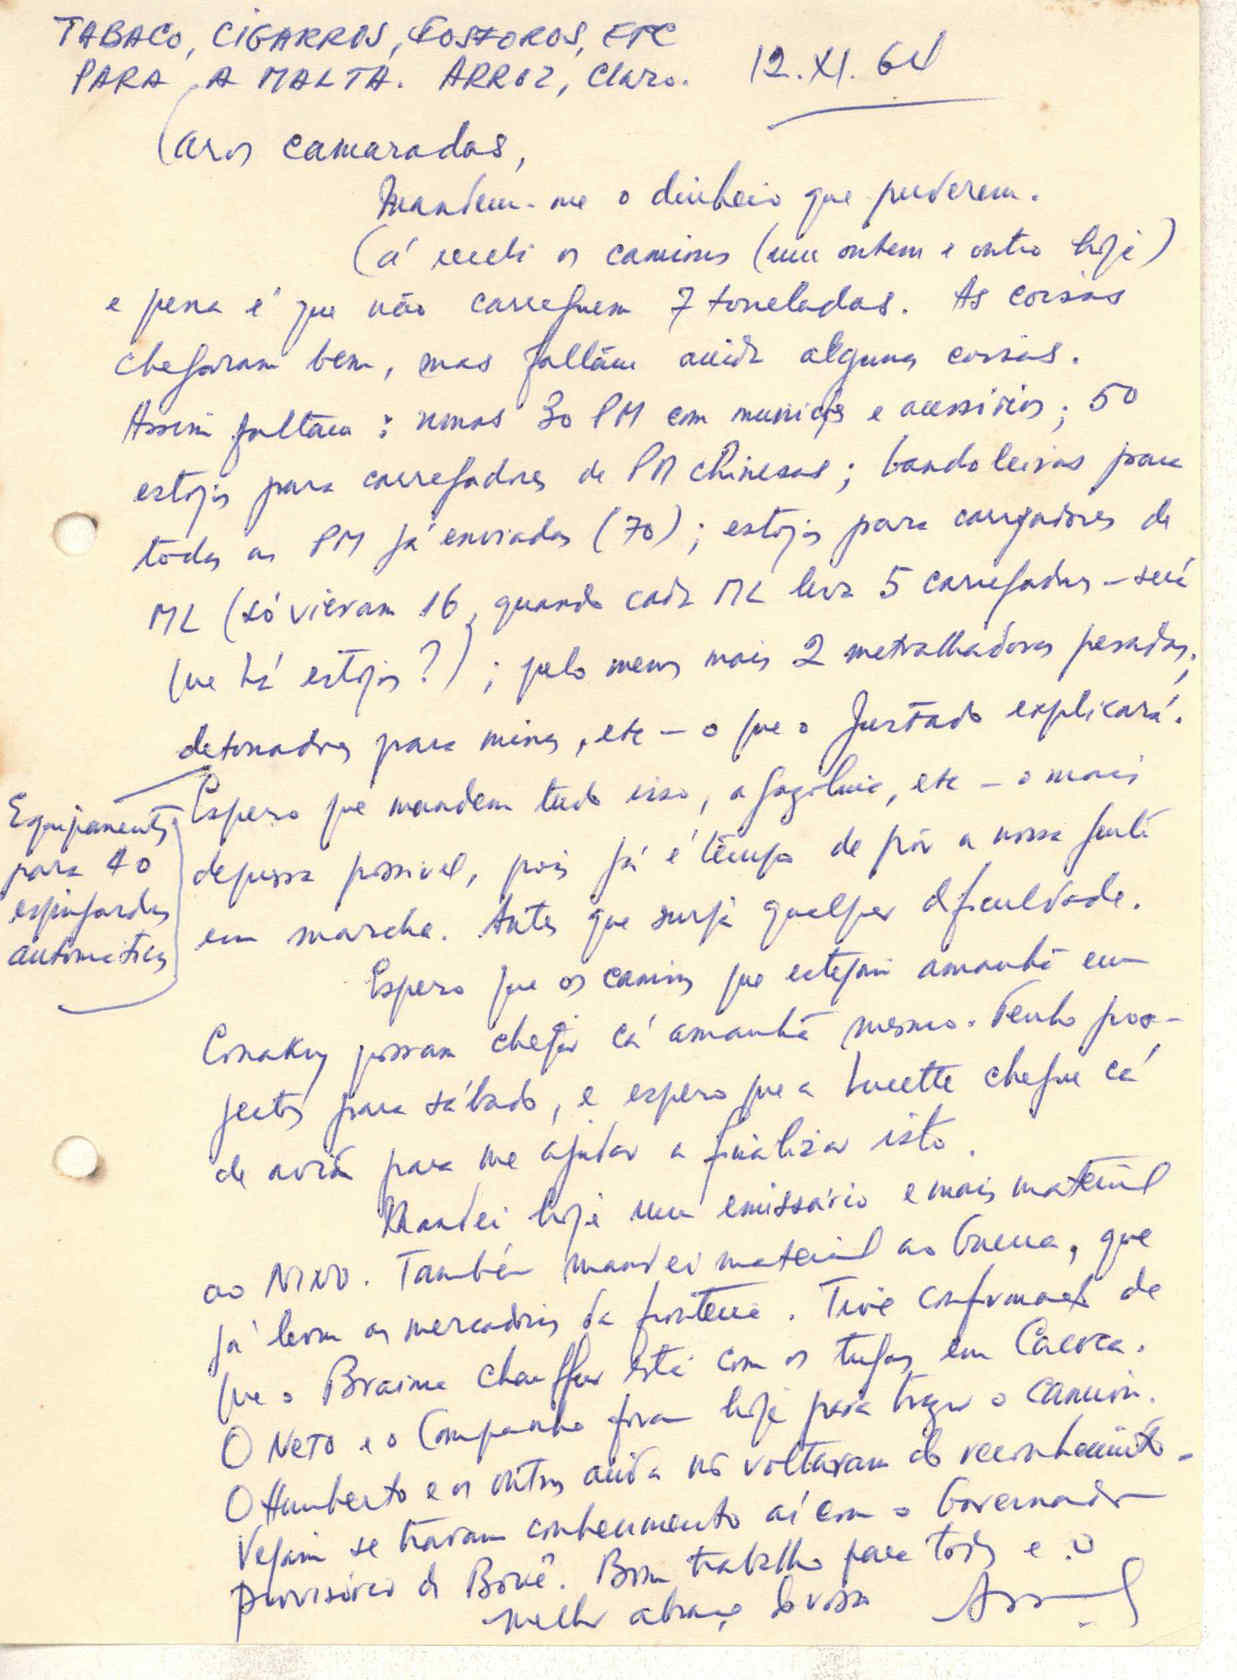 TABACO, CIGARROS, FOSFOROS, ETC
PARA A MALTA. ARROZ, Claro.
12.XI.64
Caros camaradas,
Mandem-me o dinheiro que puderem.
Cá recebi os camions (um ontem e outro hoje)
e pena é que não carreguem 7 toneladas. As coisas
chegaram bem, mas faltam ainda algumas coisas.
Assim faltam: umas 30 PM com munições e acessórios; 50
estojos para carregadores de PM chinesas; bandoleiras para
todas as PM já enviadas (70); estojos para carregadores de
ML (só vieram 16, quando cada ML leva 5 carregadores - será
que há estojos?); pelo menos mais 2 metralhadoras pesadas;
detonadores para minas, etc - o que o Furtado explicará.
Equipamentos
para 40
espingardas
automáticas
Espero que mandem tudo isso, a gasolina, etc - o mais
depressa possivel, pois já é tempo de pôr a nossa gente
em marcha. Antes que surja qualquer dificuldade.
Espero que os camions que estejam amanhã em
Conakry possam chegar cá amanhã mesmo. Tenho pro-
jectos para sábado, e espero que a Lucette chegue cá
de avião para me ajudar a finalizar isto.
Mandei hoje um emissário e mais material
ao NINO. Também mandei material ao Guerra, que
já levam as mercadorias da fronteira. Tive confirmação de
que o Braima chauffeur está com os tugas em Cacoca.
O NETO e o Companha foram hoje para trazer o camion.
O Humberto e os outros ainda não voltaram do reconhecimento.
Vejam se travam conhecimento aí com o Governador
provisório de Boké. Bom trabalho para todos e o
melhor abraço do vosso